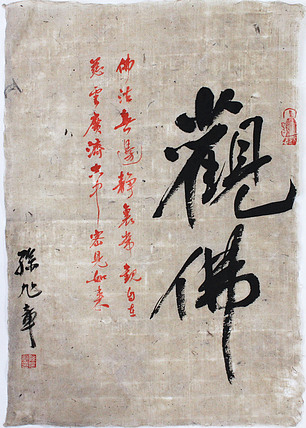 觀佛
佛法無邊靜裏常觀自在
慈雲廣濟空中密見如來
孫旭章